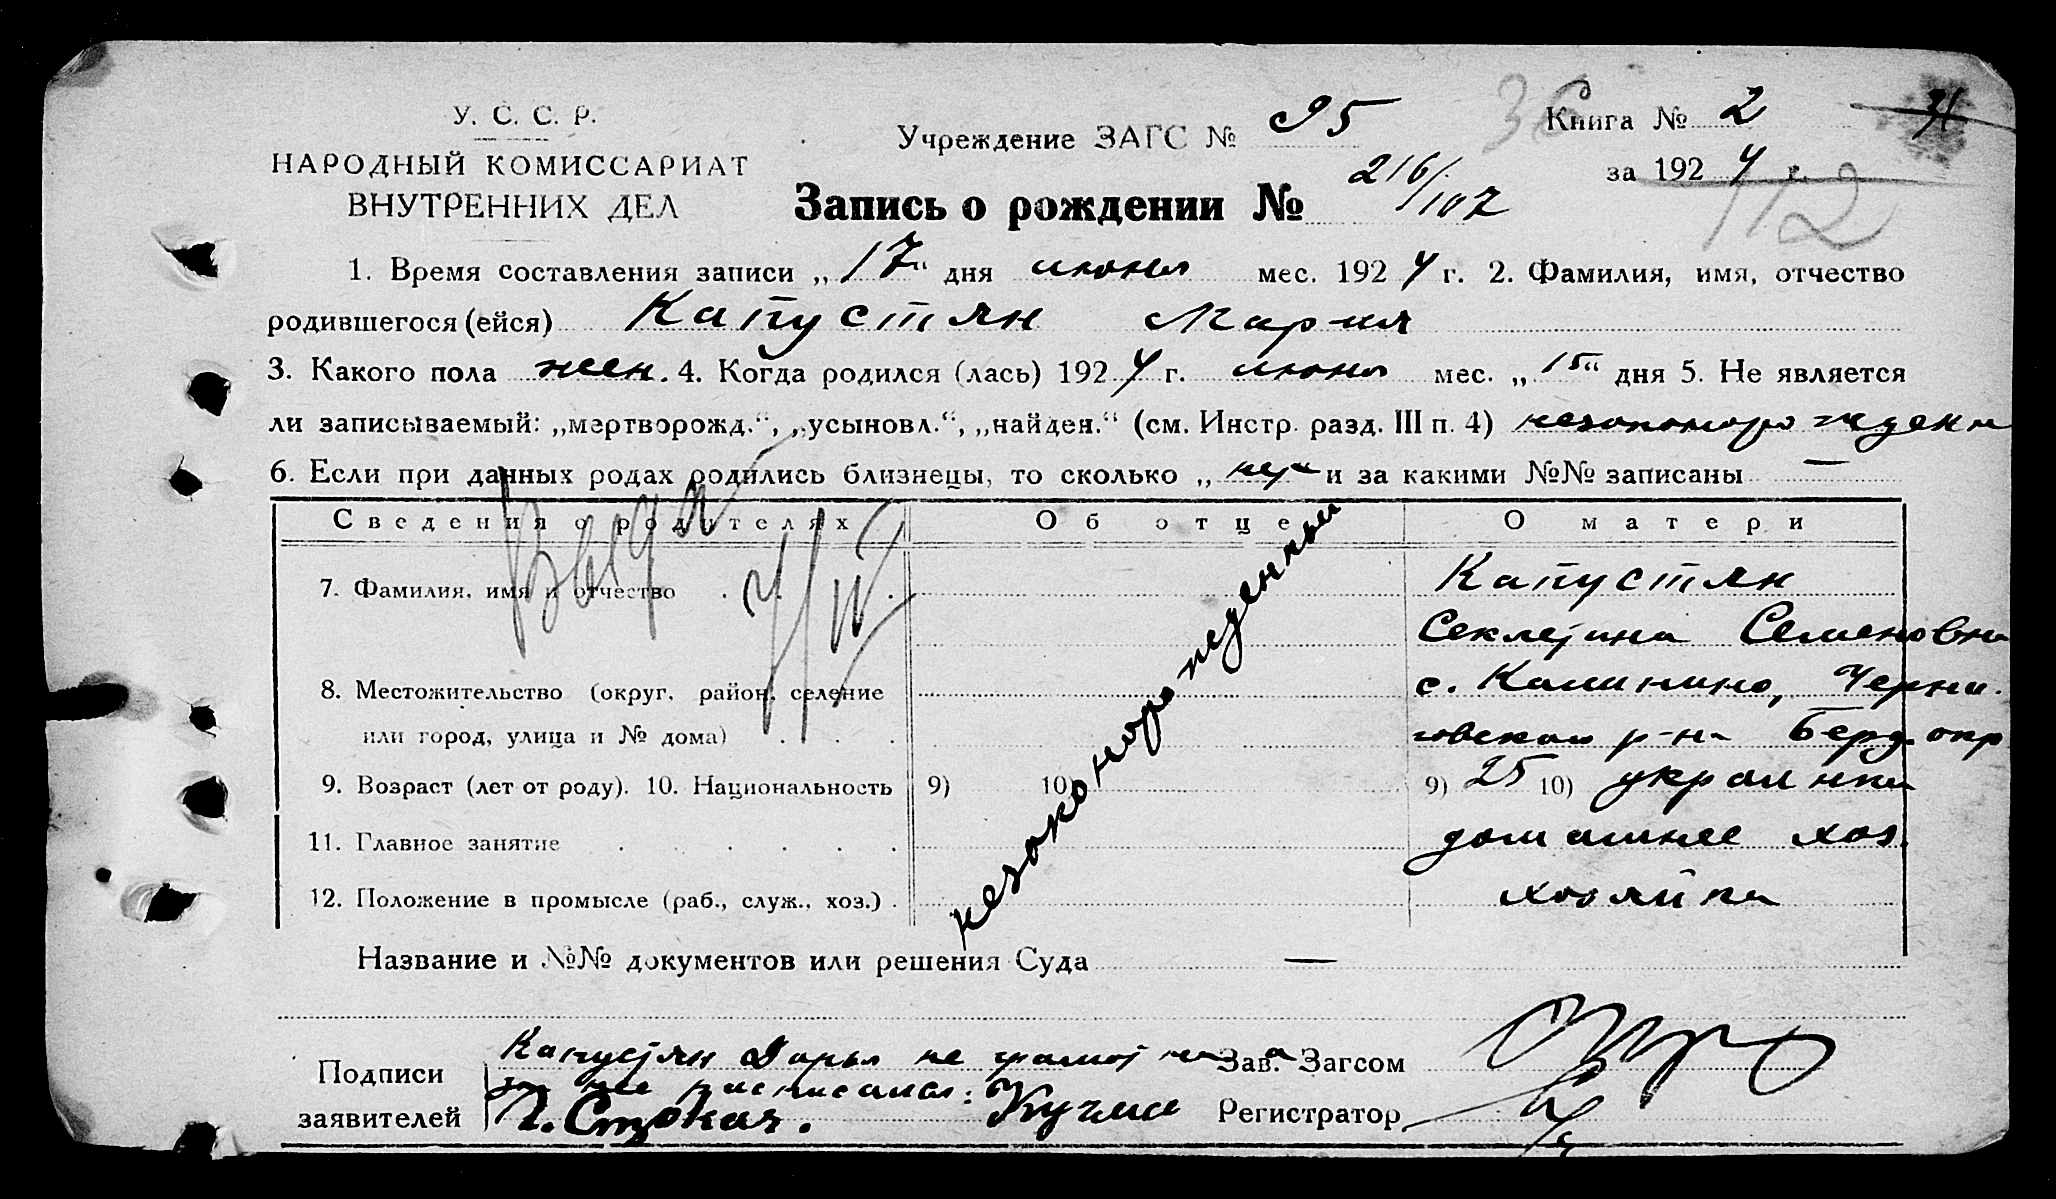 У. С. С. Р.
НАРОДНЫЙ КОМИССАРИАТ
ВНУТРЕННИХ ДЕЛ
Учреждение ЗАГС № 95
36
Книга № 2
31
за 1924 г.
112
Запись о рождении № 216/107
1. Время составления записи „17“ дня июня мес. 1924 г. 2. Фамилия, имя, отчество
родившегося (ейся) Капустян Мария
3. Какого пола жен. 4. Когда родился (лась) 1924 г. июня мес. „15“ дня 5. Не является
ли записываемый: „мертворожд.“, „усыновл.“, „найден.“ (см. Инстр. разд. III п. 4) незаконорожденн
6. Если при данных родах родились близнецы, то сколько „нет“ и за какими №№ записаны —
Сведения о родителях Об отце О матери
7. Фамилия, имя и отчество Капустян
Секлетина Семеновна
8. Местожительство (округ, район, селение с. Калинино, Черни-
или город, улица и № дома) говского р-на Берд. окр
9. Возраст (лет от роду). 10. Национальность 9) 10) 9) 25 10) украинка
11. Главное занятие домашнее хоз.
12. Положение в промысле (раб., служ., хоз.) хозяйка
незаконорожденный
Название и №№ документов или решения Суда —
Подписи
заявителей
Капустян Дарья не грамотна
за нее расписался:
Кучма
Зав. Загсом
Регистратор